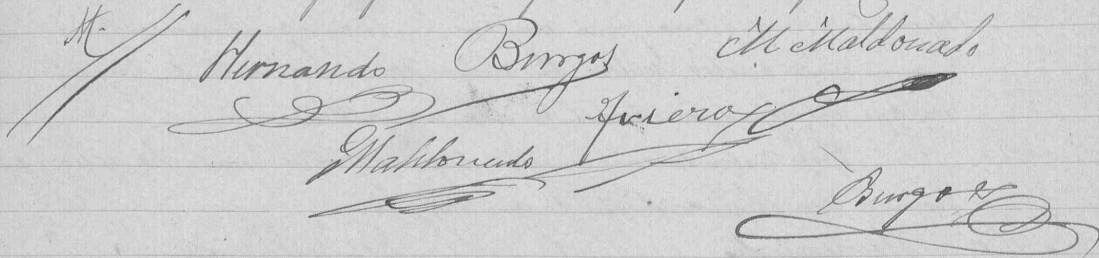 M.
Hernando Burgos M Maldonado
Maldonado
Burgos